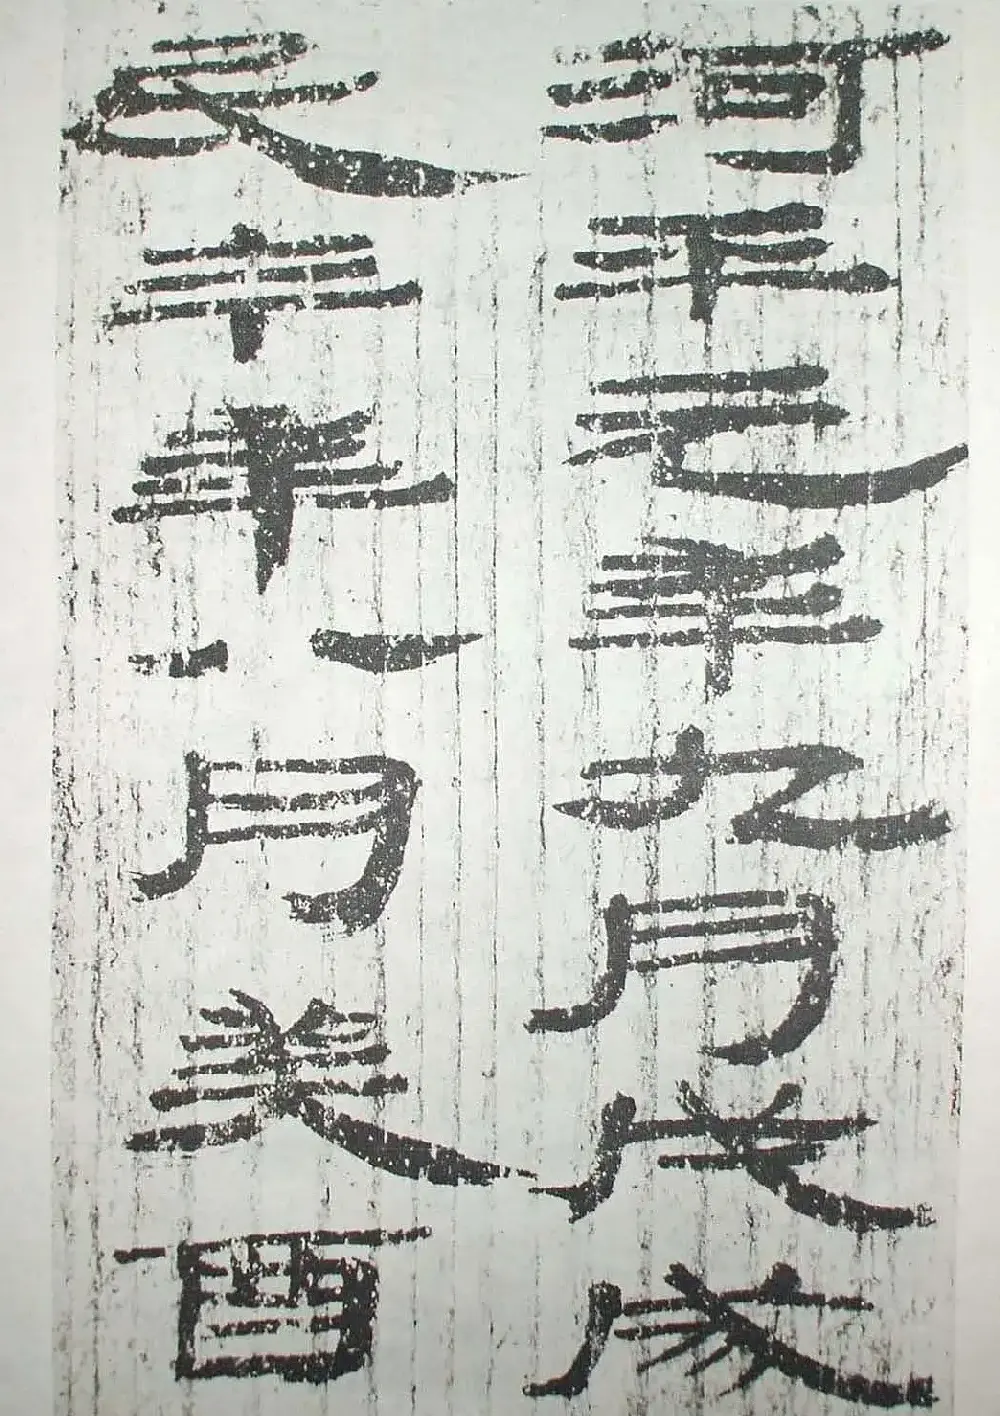 河平元年九月戊戌
年八月癸酉